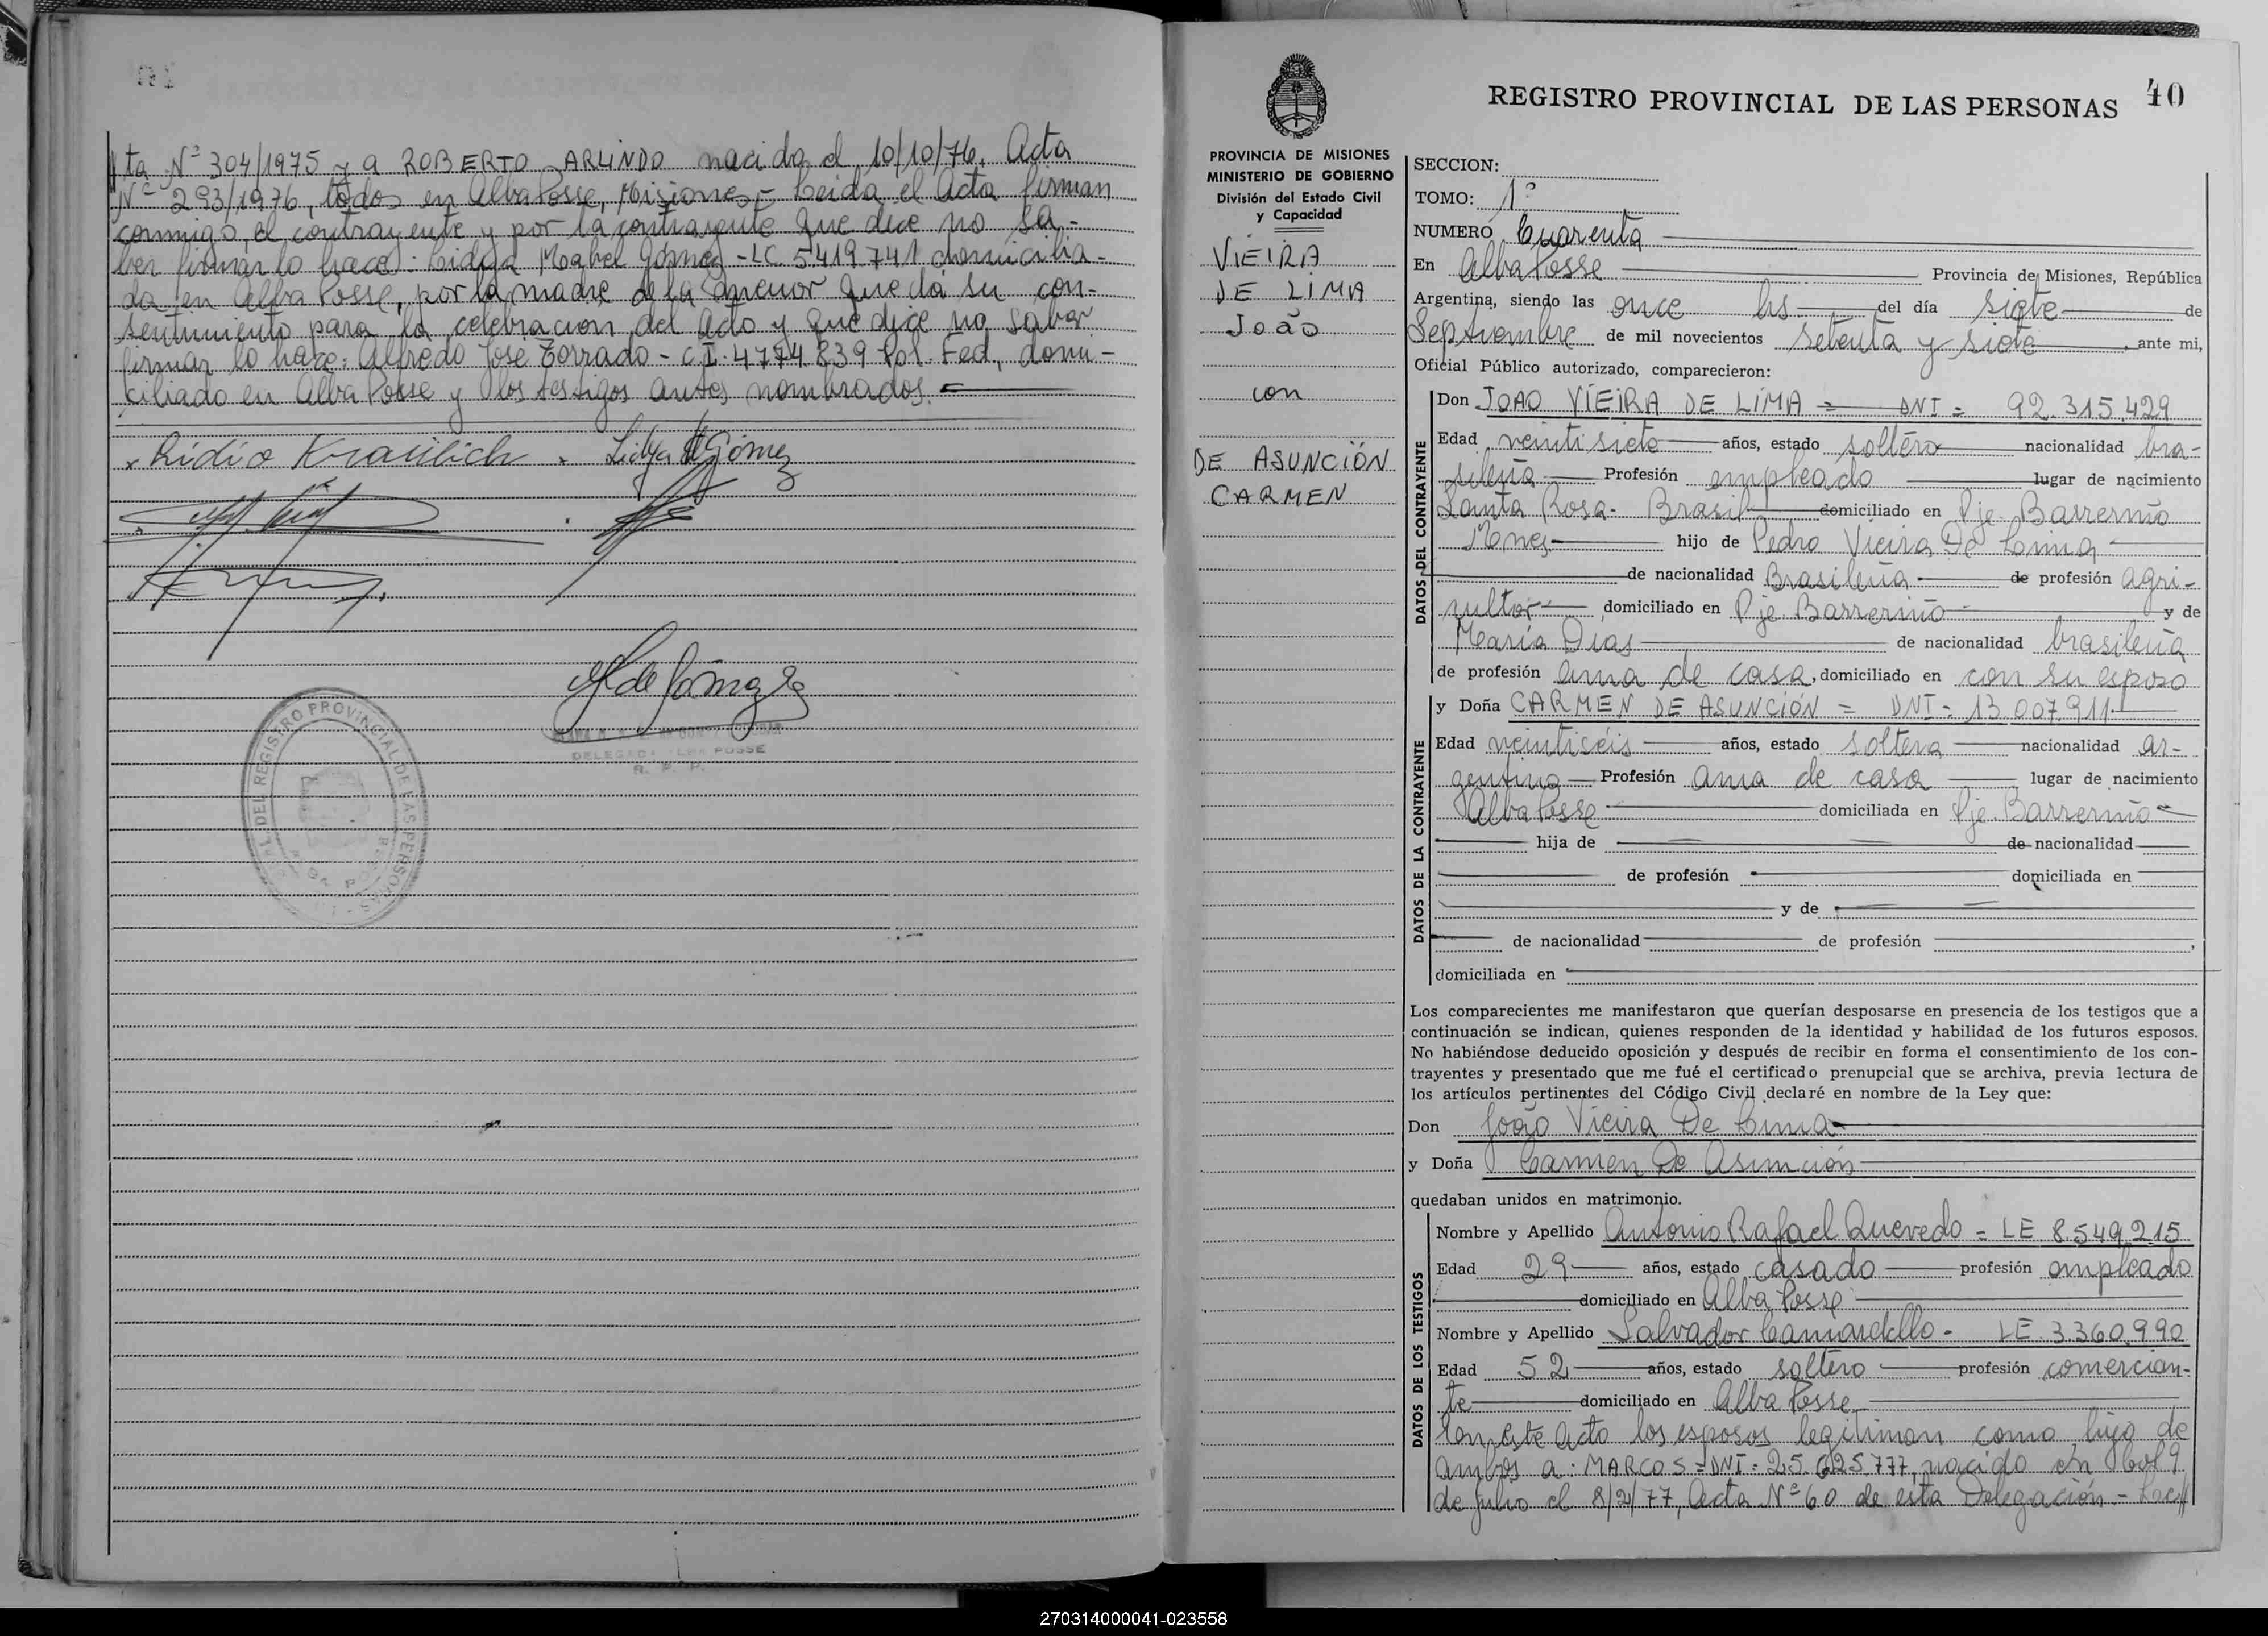 ta Nº 304/1975 y a ROBERTO ARLINDO nacido el 10/10/76. Acta
Nº 293/1976, todos en Alba Posse, Misiones - Leida el Acta firman
conmigo, el contrayente y por la contrayente que dice no sa-
ber firmar lo hace: Lidya Mabel Gómez - LC. 5419741 domicilia-
da en Alba Posse, por la madre de la menor que dá su con-
sentimiento para la celebracion del Acto y que dice no saber
firmar lo hace: Alfredo José Torrado - C.I. 4774.839 Pol. Fed, domi-
ciliado en Alba Posse y los testigos antes nombrados.
Lidio Lidya M Gómez
DEL REGISTRO PROVINCIAL DE LAS PERSONAS
ALBA POSSE
POSSE
R. P. P.
40
REGISTRO PROVINCIAL DE LAS PERSONAS
PROVINCIA DE MISIONES
MINISTERIO DE GOBIERNO
División del Estado Civil
y Capacidad
VIEIRA
DE LIMA
João
con
DE ASUNCIÓN
CARMEN
SECCION:
TOMO: 1º
NUMERO Cuarenta
En Alba Posse Provincia de Misiones, República
Argentina, siendo las once hs del día siete de
Septiembre de mil novecientos setenta y siete, ante mi,
Oficial Público autorizado, comparecieron:
DATOS DEL CONTRAYENTE
Don JOAO VIEIRA DE LIMA = DNI = 92.315.429
Edad veintisiete años, estado soltero nacionalidad bra-
sileña Profesión empleado lugar de nacimiento
Santa Rosa - Brasil domiciliado en Pje. Barrerniño
Mnes hijo de Pedro Vieira De Lima
de nacionalidad Brasileña de profesión agri-
cultor domiciliado en Pje. Barrerniño y de
María Dias de nacionalidad brasileña
de profesión ama de casa, domiciliado en con su esposo
DATOS DE LA CONTRAYENTE
y Doña CARMEN DE ASUNCIÓN = DNI - 13.007.911
Edad veintiséis años, estado soltera nacionalidad ar-
gentina Profesión ama de casa lugar de nacimiento
Alba Posse domiciliada en Pje. Barrerniño
hija de de nacionalidad
de profesión domiciliada en
y de
de nacionalidad de profesión ,
domiciliada en
Los comparecientes me manifestaron que querían desposarse en presencia de los testigos que a
continuación se indican, quienes responden de la identidad y habilidad de los futuros esposos.
No habiéndose deducido oposición y después de recibir en forma el consentimiento de los con-
trayentes y presentado que me fué el certificado prenupcial que se archiva, previa lectura de
los artículos pertinentes del Código Civil declaré en nombre de la Ley que:
Don João Vieira De Lima
y Doña Carmen De Asunción
quedaban unidos en matrimonio.
DATOS DE LOS TESTIGOS
Nombre y Apellido Antonio Rafael Quevedo = LE 8.549.215
Edad 29 años, estado casado profesión empleado
domiciliado en Alba Posse
Nombre y Apellido Salvador Camardello - LE. 3.360.990
Edad 52 años, estado soltero profesión comercian-
te domiciliado en Alba Posse
En este Acto los esposos legitiman como hijo de
ambos a: MARCOS = DNI = 25.625.777, nacido en Col 9
de Julio el 8/2/77, Acta Nº 60 de esta Delegación -
270314000041-023558